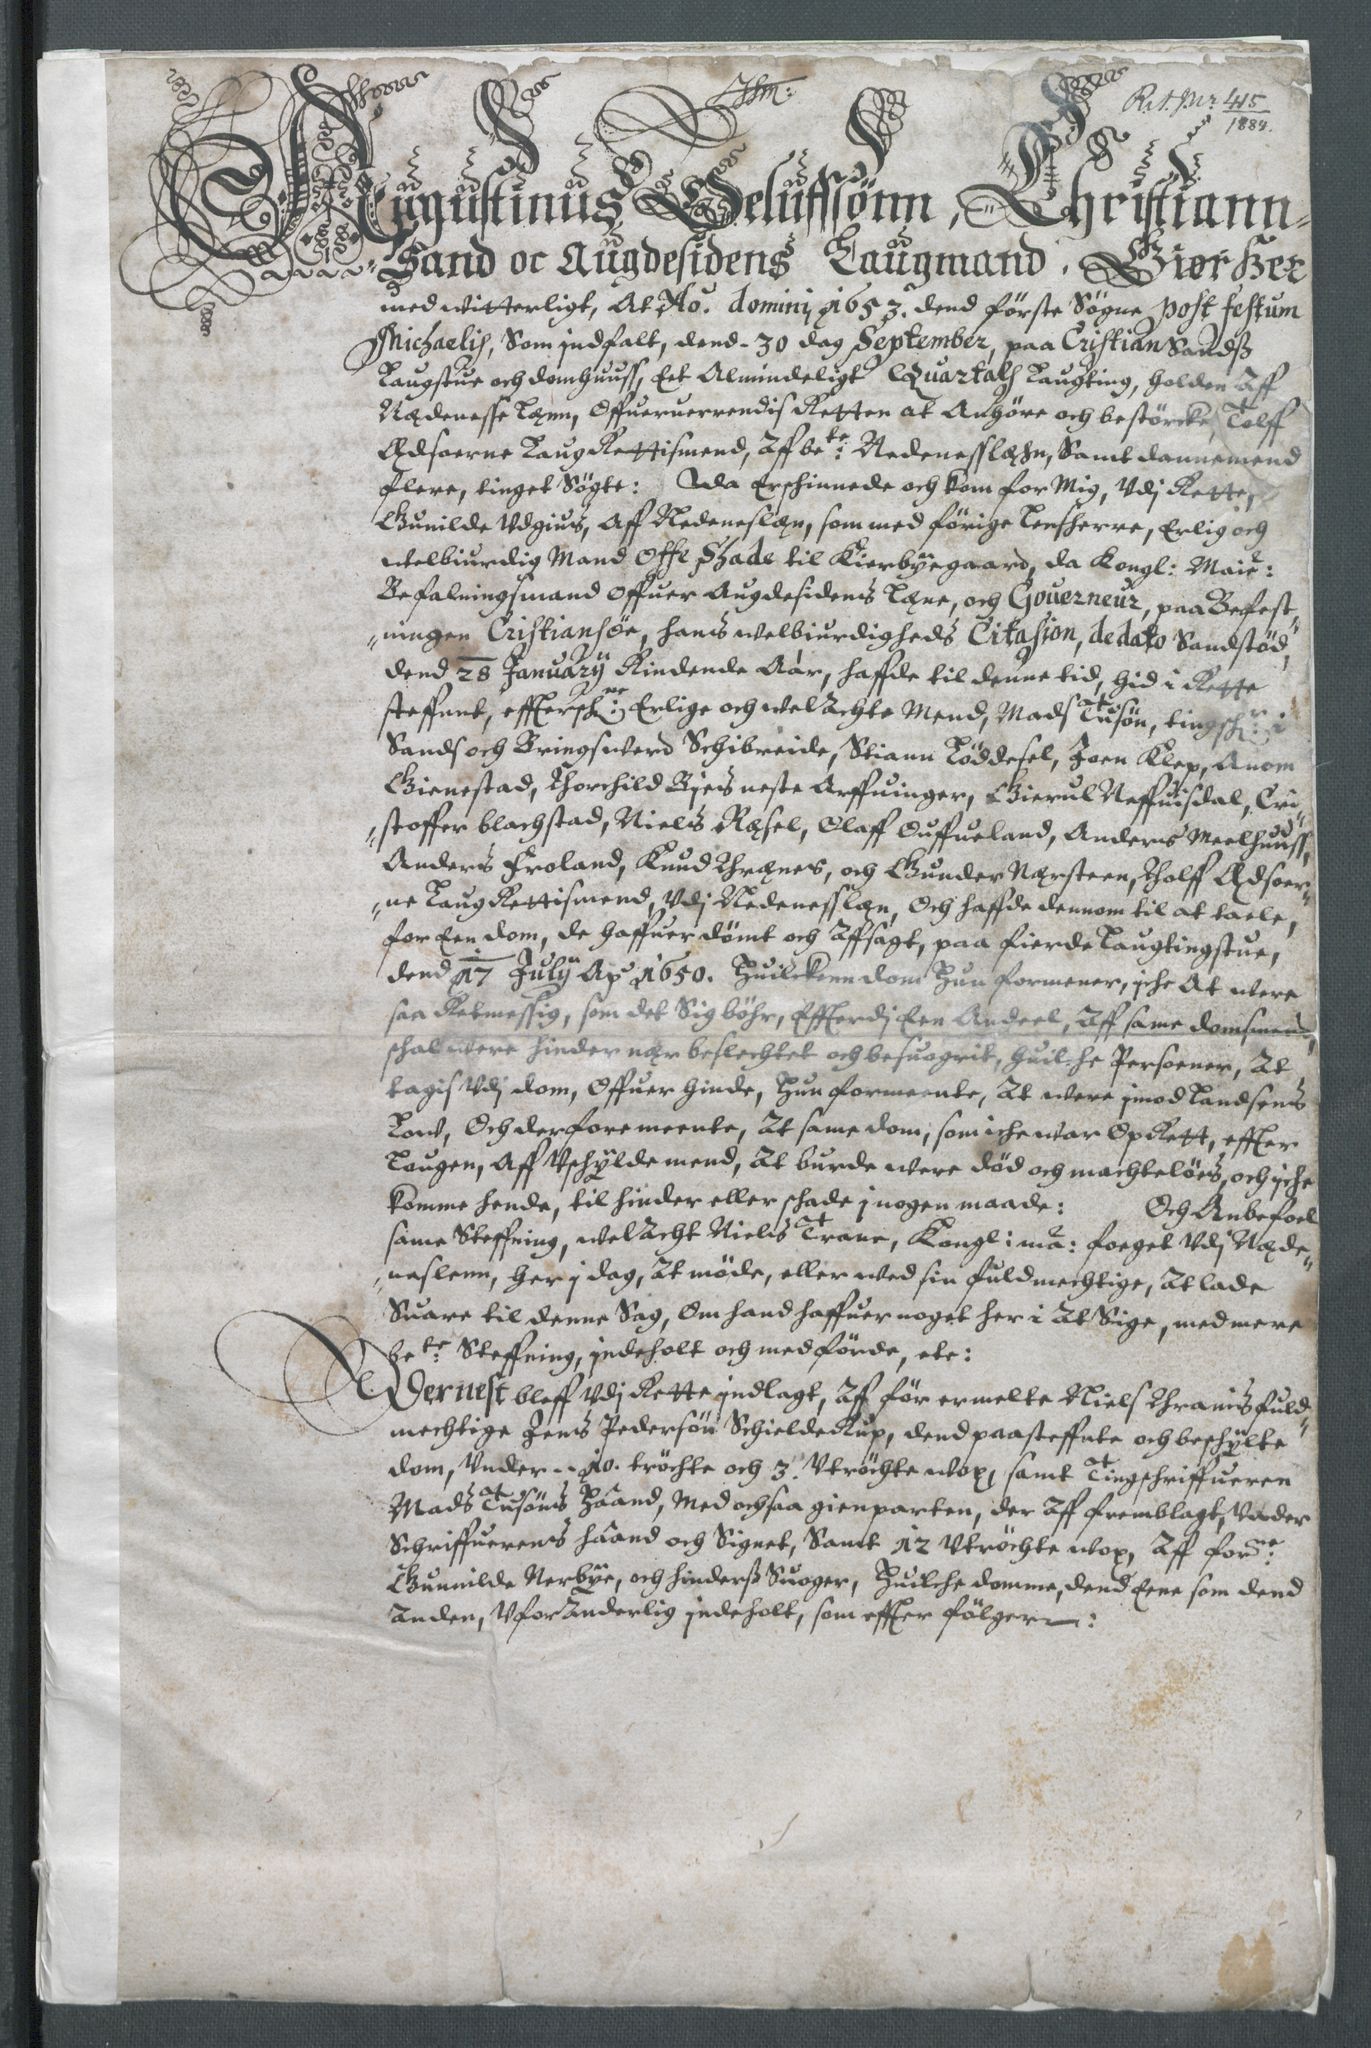 Ihm:
Ret. Nr 415
1884.
Augustinus Oeluffsönn, Christiann-
Sand oc Augdesidens Laugmand. Giör her
med witterligt, At Ao. dominj 1653. dend förste Sögne post festum
Michaelis, Som jndfalt, dend 30 dag September, paa CristianSandß
Laugstue och domhuuss, Eet Almindeligt Quartals Laugting, holden Aff
Nædenesse Læn, Offueruerrendis Retten at Anhöre och bestörcke, Tolff
Edsoerne LaugRettismend, Aff bete: Nedenesslæhn, Samt dannemend
flere, tinget Sögte: Da Erschinnede och kom for Mig, Vdj Rette,
Gunilde Vdgius, Aff Nedeneslæn, som med förige Lensherre, Erlig och
welbiurdig Mand Offe Skade til Kierbyegaard, da Kongl: Maits:
Befalningsmand offuer Augdesidens Læne, och Gouerneur, paa Befest-
ningen Cristiansöe, hans welbiurdigheds Citasion, de dato Sandstöd,
dend 28 January Rindende Aár, haffde til denne tid, hid i Rette
steffent, effterschne: Erlige och welachte Mend, Mads Tusön, tingschr: i
Sands och Bringswerd Schibreide, Stiann Löddesel, Joen Klep, Anom
Gienestad, Thorchild Bies neste Arffuinger, Gierul Neffuisdal, Cri-
stoffer blachstad, Niels Ræsel, Olaff Ouffueland, Anders Meelhuuss,
Anders Froland, Knud Thrænes, och Gunder Næsteen, Tholff Edsoer-
ne LaugRettismend, Vdj Nedenesslæn, Och haffde dennom til at taele,
for Een dom, de haffuer dömt och Affsagt, paa fierde Laugtingstue,
dend 17 July Ao 1650. Huilcken dom Hun formener, iche At were
saa Retmessig, som det Sig böhr, Effterdj Een Andeel, Aff same domsmend,
schal were hinder nær beslechtet och besuogrit, huilche Persoener, At
tagis Vdj dom, Offuer hinde, Hun formeente, At were jmod Landsens
Low, Och derfore meente, At same dom, som iche war OpRett, effter
Lougen, Aff Vschyldemend, At burde were död och machtelöes, och iche
komme hende, til hinder eller schade j nogen maade: Och Anbefoel
same Steffning, welacht Niels Trane, Kongl: ma: foeget Vdj Næde-
neslenn, her j dag, At möde, eller wed sin fuldmechtige, At lade
Suare til denne Sag, Om hand haffuer noget her i At Sige, med mere
bete: Steffning, jndeholt och medförde, etc:
Dernest bleff Vdj Rette jndlagt, Aff för ermelte Niels Thranis fuld-
mechtige Jens Pedersön Schielderup, dend paasteffnte och beschylte
dom, Vnder 10. tröchte och 3. Vtröchte wox, samt Tingschriffueren
Mads Tusöns Haand, Med ochsaa gienparten, der Aff fremblagt, Vnder
Schriffuerens haand och Signet, Samt 12 Vtröchte wox, Aff forne:
Gunnilde Nerbye, och hinderß Suoger, Huilche domme, dend Eene som dend
Anden, Vforanderlig jndeholt, som effter fölger: